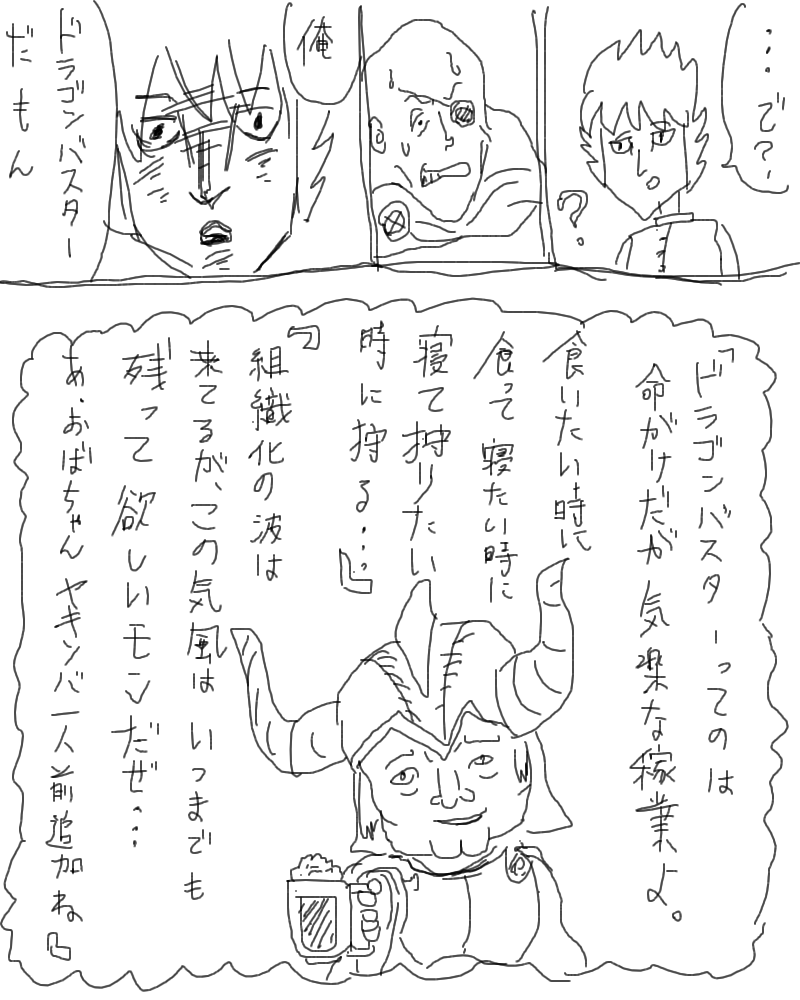 …で?
?
俺
ドラゴンバスター
だもん
「ドラゴンバスターってのは
命がけだが気楽な稼業よ。
食いたい時に
食って寝たい時に
寝て狩りたい
時に狩る…」
「組織化の波は
来てるが、この気風はいつまでも
残って欲しいモンだぜ…
あ、おばちゃんヤキソバ一人前追加ね」